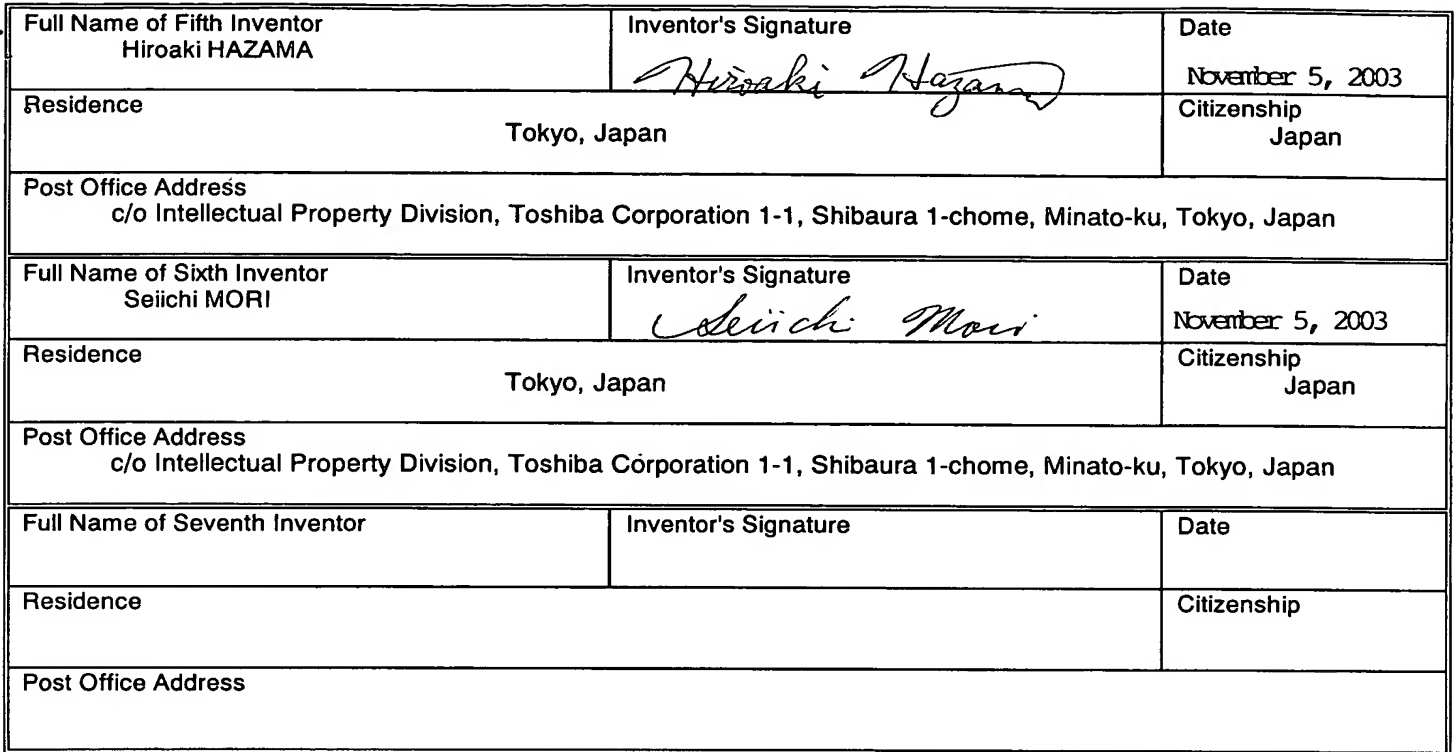 Full Name of Fifth Inventor
Hiroaki HAZAMA
Inventor's Signature
Hiroaki Hazama
Date
November 5, 2003
Residence
Tokyo, Japan
Citizenship
Japan
Post Office Address
c/o Intellectual Property Division, Toshiba Corporation 1-1, Shibaura 1-chome, Minato-ku, Tokyo, Japan
Full Name of Sixth Inventor
Seiichi MORI
Inventor's Signature
Seiichi Mori
Date
November 5, 2003
Residence
Tokyo, Japan
Citizenship
Japan
Post Office Address
c/o Intellectual Property Division, Toshiba Corporation 1-1, Shibaura 1-chome, Minato-ku, Tokyo, Japan
Full Name of Seventh Inventor
Inventor's Signature
Date
Residence
Citizenship
Post Office Address